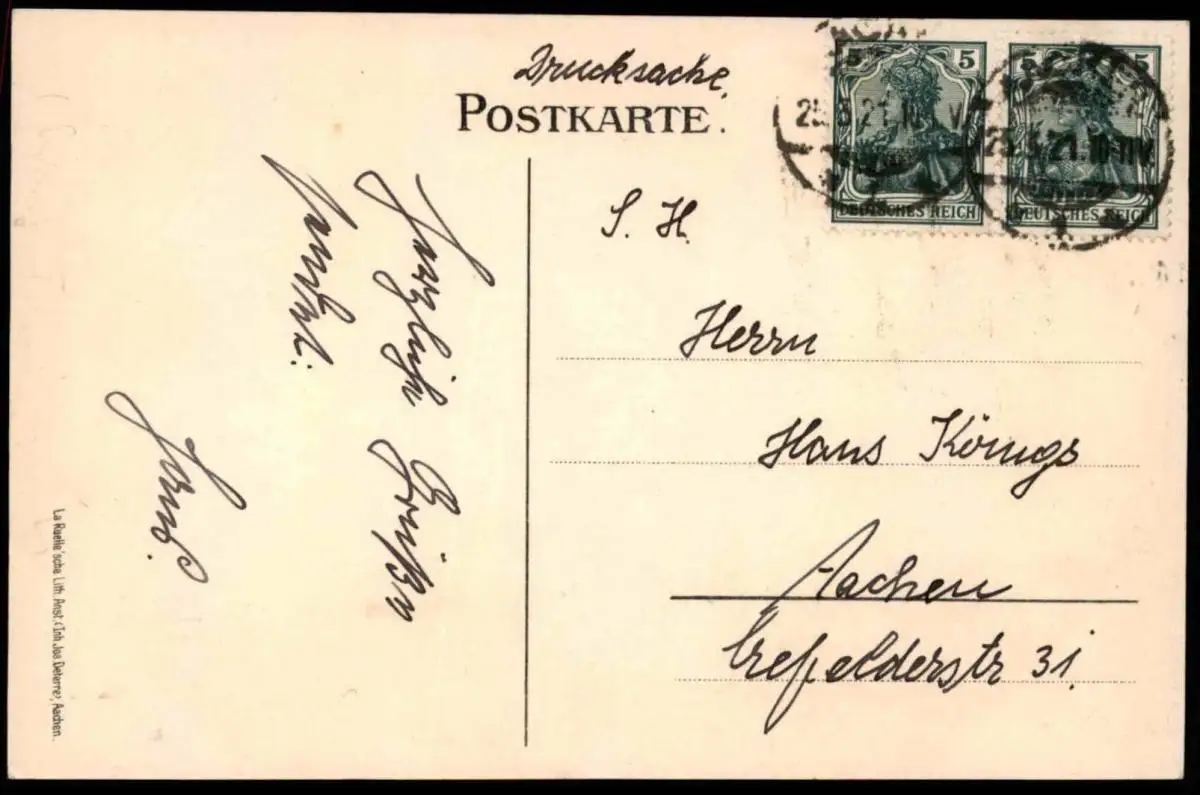 Drucksache.
POSTKARTE.
5 5
5 5
DEUTSCHES REICH
DEUTSCHES REICH
25.3.21.10 V
25.3.21.10-11V.
S. H.
Herrn
Hans Königs
Aachen
Crefelderstr 31.
Herzliche Grüßen
La Ruelle'sche Lith. Anst. Inh. Jos Deterre, Aachen.